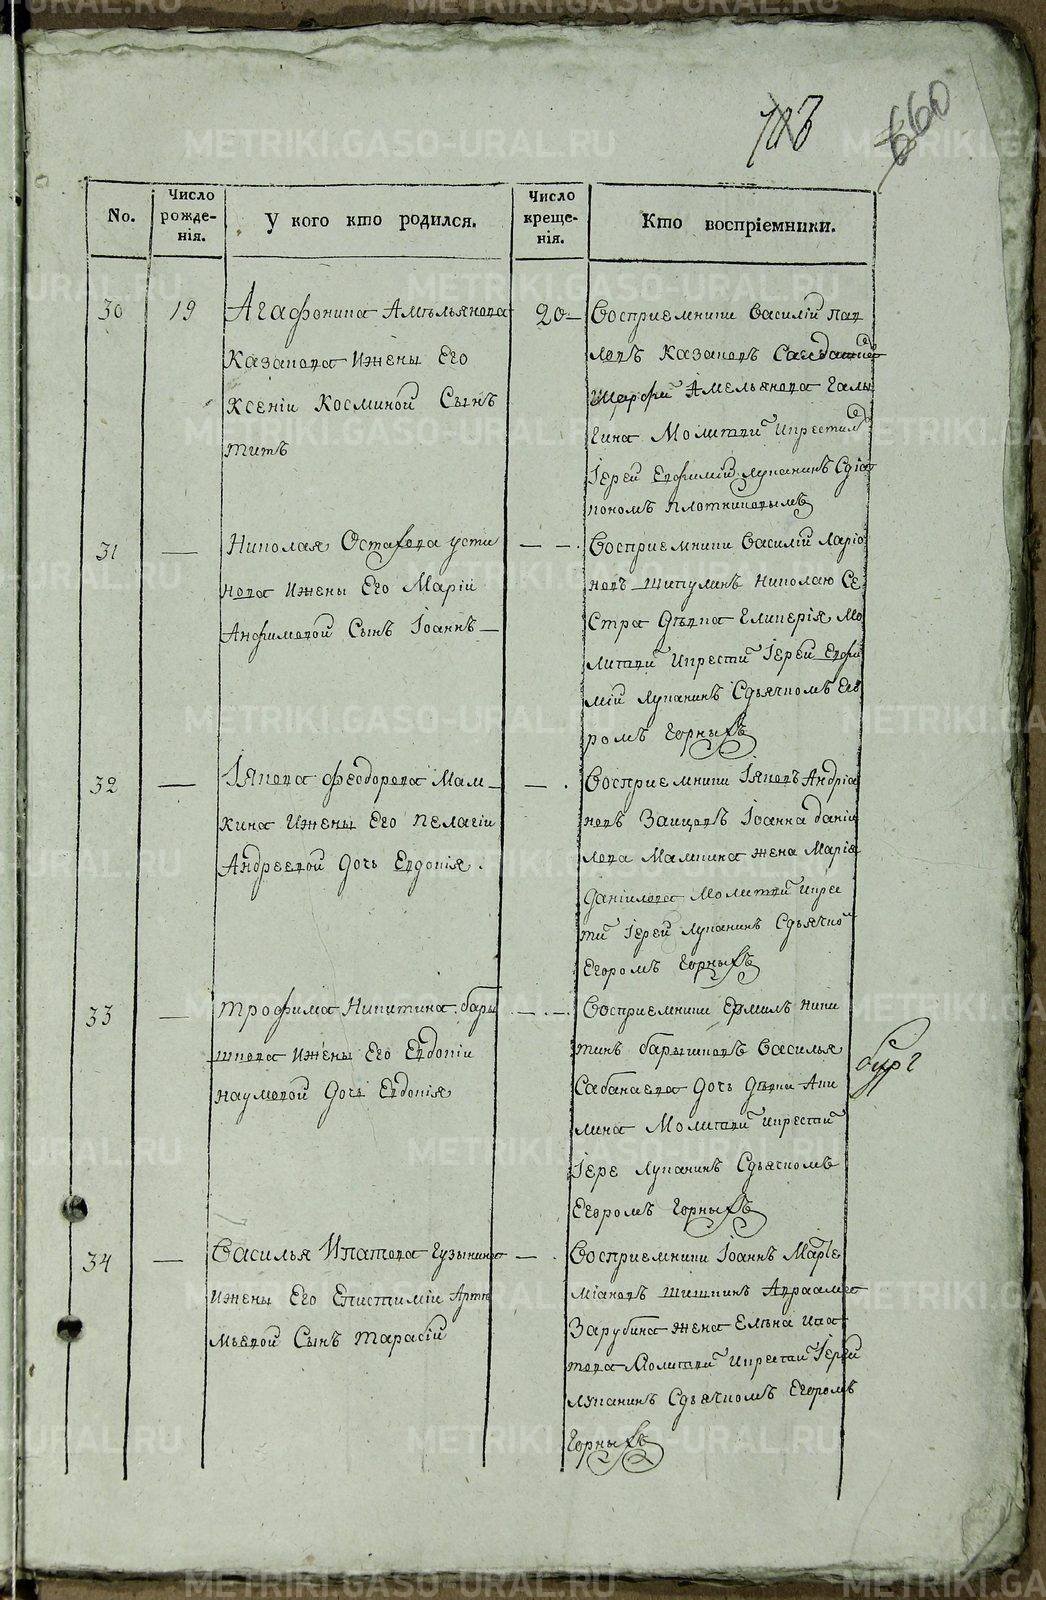 660
No.
Число рожде-нія.
У кого кто родился.
Число креще-нія.
Кто воспріемники.
30
19
Агафоника Амѣльянова
Казакова Ижены Его
Ксеніи Косминой Сынъ
титъ
20
Восприемники Василій пав
ловъ Казаковъ
Амельянова Галы
гина Молитви Икрестил
Іерей Евфимій Лукан​инъ Сдіа
кономъ плотниковымъ
31
Николая Остафева усти
нова Ижены Его Маріи
Анфимовой Сынъ Іоаннъ
Восприемники Василій Ларіо
новъ Шипулинъ Николаю Се
стра Дѣвка Гликерія Мо
литви Икрести Іерей Евфи
мій Луканинъ Сдьячкомъ Его
ромъ Горныхъ
32
Іякова Феодорова Мам
кина Ижены Его Пелагіи
Андреевой Дочь Евдокія
Восприемники Іяковъ Андріа
новъ Заицовъ Іоанна даніи
лова Мамкина жена Марія
Даніилова Молитви Икрес
ти Іерей Луканинъ Сдьячко
Егоромъ Горныхъ
33
трофима Никитина бары
шкова Ижены Его Евдокіи
наумовой Дочь Евдокія
Восприемники Ермилъ ники
тинъ барышковъ Василья
Сабанаева Дочь Дѣвка Аку
лина Молитви Икрести
Іере Луканинъ Сдьячкомъ
Егоромъ Горныхъ
34
Василья Ипатова Гузынина
Ижены Его Епистиміи Арте
мьевой Сынъ Тарасій
Восприемники Іоаннъ Макіе
міановъ Шишкинъ Авраама
Зарубина жена Елѣна Ипа
това Молитви Икрести Іерей
Луканинъ Сдьячкомъ Егоромъ
Горныхъ
METRIKI.GASO-URAL.RU